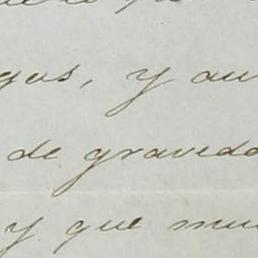 gos, y au
de graveda
y que mu